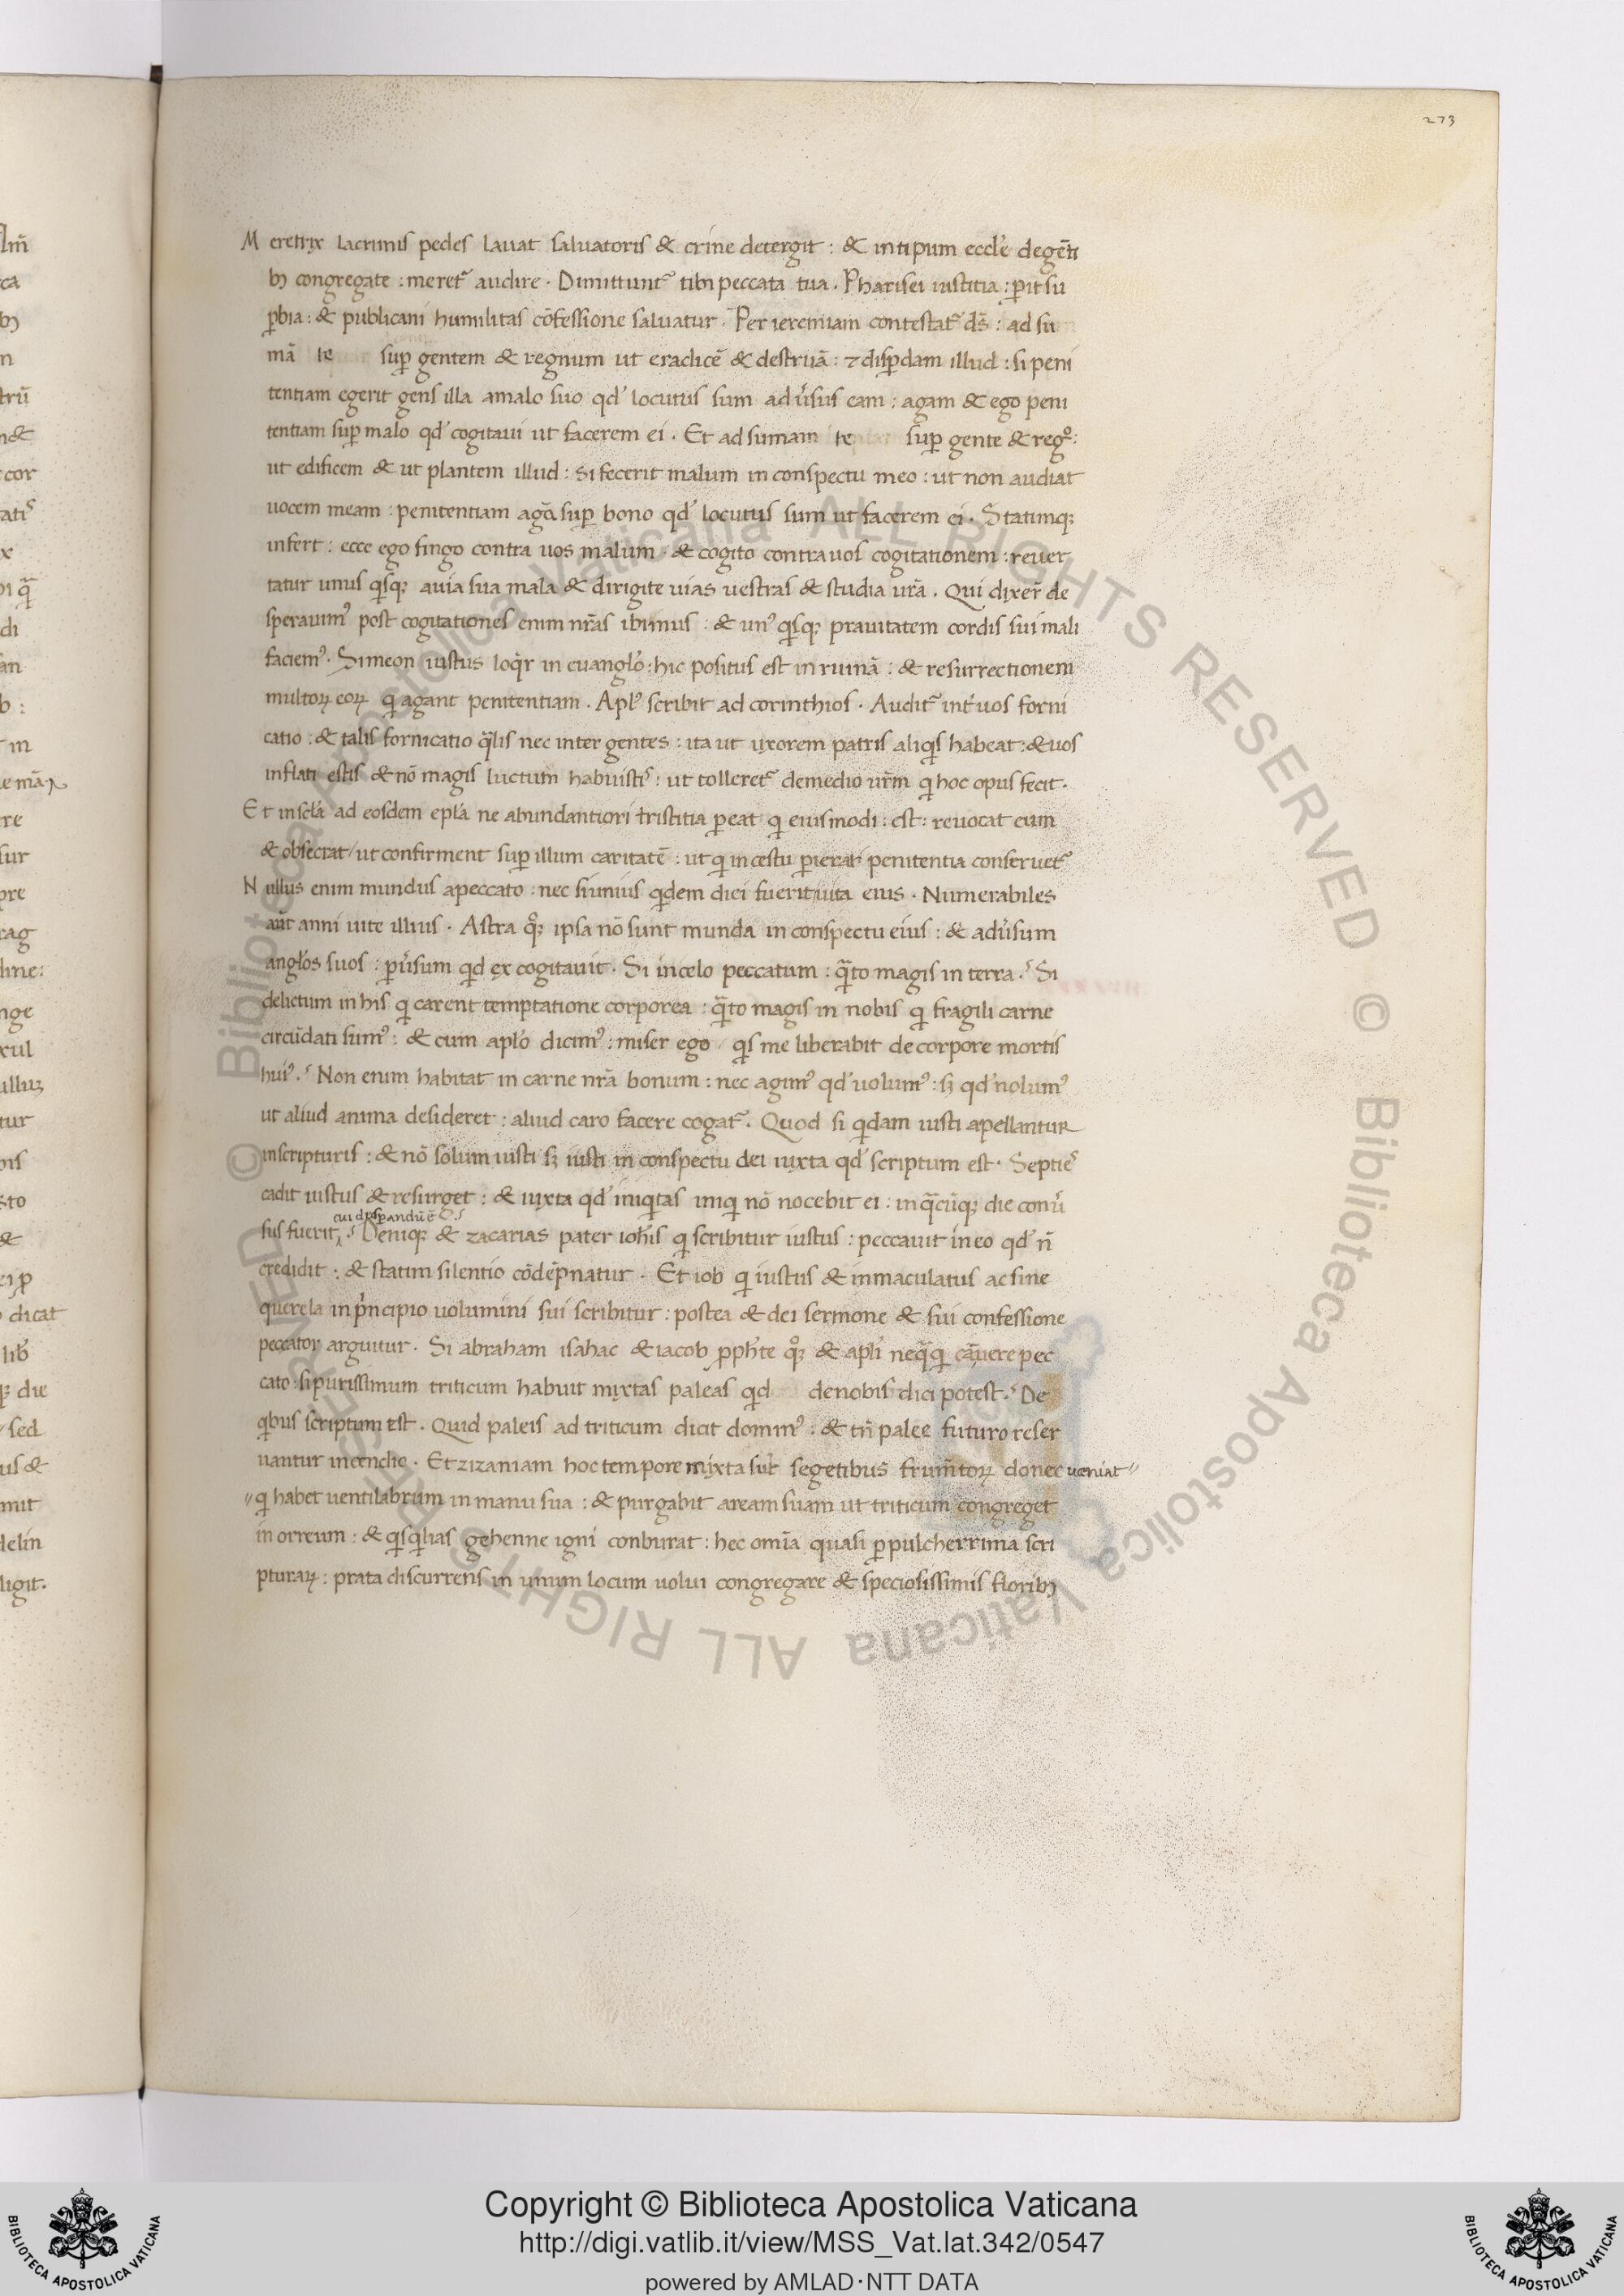 273
Meretrix lacrimis pedes lavat salvatoris & crine detergit : & intipum eccl'e degẽti
bꝫ congregate : meret᷑ audire . Dimittunt᷑ tibi peccata tua . Pharisei iustitia : ꝑit su
ꝑbia : & publicani humilitas cõfessione salvatur . Per ieremiam contestat᷑ ds̃ : ad su
mã te suꝑ gentem & regnum ut eradicẽ & destruã : ⁊ disꝑdam illud : si peni
tentiam egerit gens illa amalo suo qd' locutus sum adṽsus eam : agam & ego peni
tentiam suꝑ malo qd' cogitavi ut facerem ei . Et ad sumam te suꝑ gente & regº :
ut edificem & ut plantem illud : si fecerit malum in conspectu meo : ut non audiat
uocem meam : penitentiam agã suꝑ bono qd' locutus sum ut facerem ei . Statimqꝫ
infert : ecce ego fingo contra uos malum . & cogito contra uos cogitationem : rever
tatur unus qⁱsqꝫ avia sua mala & dirigite uias uestras & studia ur̃a . Qui dixer̃ de
sperauimꝰ post cogitationes enim nr̃as ibimus : & unꝰ qⁱsqꝫ prauitatem cordis sui mali
faciemꝰ . Simeon iustus loqⁱr in euanglo : hic positus est in ruinã : & resurrectionem
multoꝝ eoꝝ qⁱ agant penitentiam . Aplꝰ scribit ad corinthios . Audit᷑ int' uos forni
catio : & talis fornicatio qᵃlis nec inter gentes : ita ut uxorem patris aliqⁱs habeat : & uos
inflati estis & nõ magis luctum habuistⁱs : ut tolleret᷑ demedio ur̃m qⁱ hoc opus fecit .
Et inscd'a ad eosdem epl'a ne abundantiori tristitia ꝑeat qⁱ eiusmodi : est : revocat eum
& obsecrat / ut confirment suꝑ illum caritatẽ : ut qⁱ incestu ꝑierat penitentia conservet᷑
Nullus enim mundus apeccato : nec si unius qⁱdem diei fuerit uita eius . Numerabiles
aũt anni uite illius . Astra qºꝫ ipsa nõ sunt munda in conspectu eius : & adṽsum
anglos suos : ꝑṽsum qⁱd ex cogitavit . Si incelo peccatum : qᵃto magis in terra . Si
delictum in his qⁱ carent temptatione corporea : qᵃto magis in nobis qⁱ fragili carne
circũdati sumꝰ : & cum aplo dicimꝰ : miser ego / qⁱs me liberabit de corpore mortis
huiꝰ . Non enim habitat in carne nr̃a bonum : nec agimꝰ qd' uolumꝰ : sꝫ qd' nolumꝰ
ut aliud anima desideret : aliud caro facere cogat᷑ . Quod si qⁱdam iusti apellantur
inscripturis : & nõ solum iusti sꝫ iusti in conspectu dei iuxta qd' scriptum est . Septieˢ
cadit iustus & resurget : & iuxta qd' iniqⁱtas iniqⁱ nõ nocebit ei : in qᵃcũqꝫ die conṽ
sus fuerit . Deniqꝫ & zacarias pater iohis qⁱ scribitur iustus : peccauit in eo qd' ñ
credidit : & statim silentio cõdẽpnatur . Et iob qⁱ iustus & inmaculatus ac sine
querela in pⁱncipio uolumini sui scribitur : postea & dei sermone & sui confessione
peccator arguitur . Si abraham isahac & iacob ꝓphe'te qºꝫ & apl'i neqᵃqⁱ cãuere pec
cato : si purissimum triticum habuit mixtas paleas qⁱd denobis dici potest . De
qⁱbus scriptum est . Quid paleis ad triticum dicit dominꝰ : & tñ palee futuro reser
uantur incendio . Et zizaniam hoc tempore mixta sũt segetibus frum̃toꝝ donec ueniat //
// qⁱ habet uentilabrum in manu sua : & purgabit aream suam ut triticum congreget
in orreum : & qⁱsqⁱlias gehenne igni conburat : hec omĩa quasi ꝑ pulcherrima scri
pturaꝝ : prata discurrens in unum locum uolui congregare & speciosissimis floribꝫ
Copyright © Biblioteca Apostolica Vaticana
http://digi.vatlib.it/view/MSS_Vat.lat.342/0547
powered by AMLAD·NTT DATA
BIBLIOTECA APOSTOLICA VATICANA
BIBLIOTECA APOSTOLICA VATICANA
© Biblioteca Apostolica Vaticana ALL RIGHTS RESERVED © Biblioteca Apostolica Vaticana ALL RIGHTS RESERVED